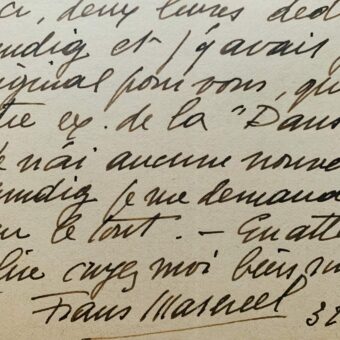 ci, deux livres déd
undig et j'y avais
iginal pour vous, qu
tre ex. de la "Dans
Je n'ai aucune nouve
undig je me demand
le tout. — En atte
croyez moi bien
Frans Masereel
32